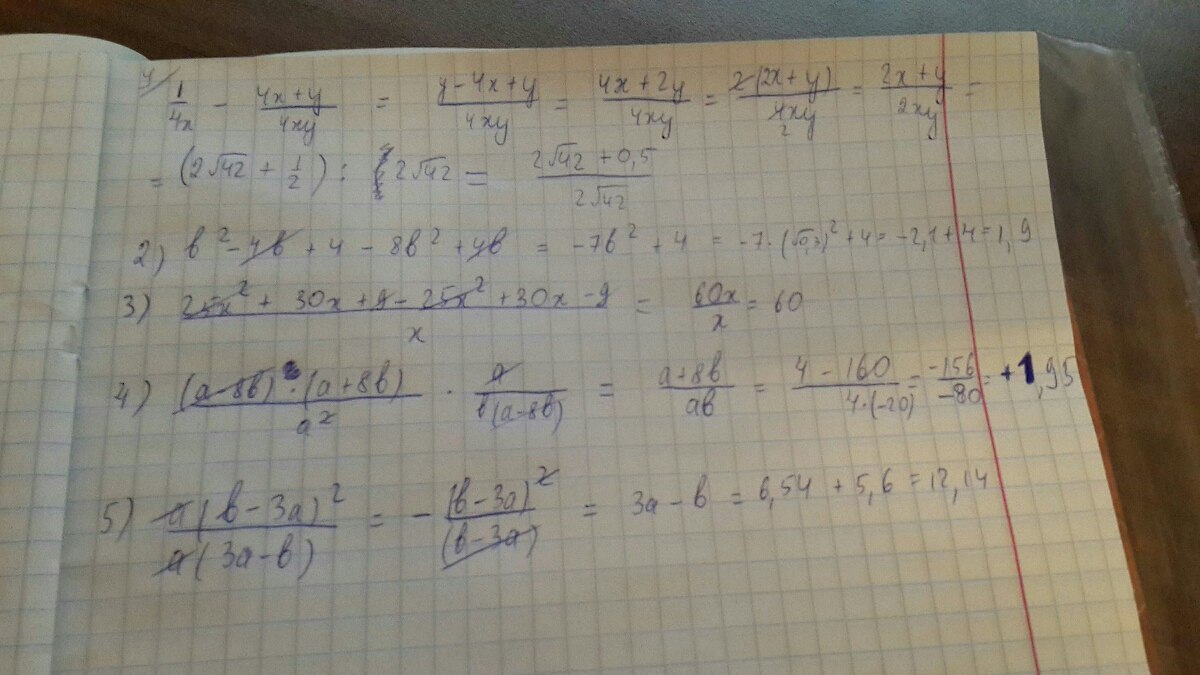 1) 1/4x - (4x+y)/4xy = (y-4x+y)/4xy = (4x+2y)/4xy = 2(2x+y)/4xy 2 = (2x+y)/2xy =
= (2√42 + 1/2) : 2√42 = (2√42 + 0,5)/2√42
2) b² - 4b + 4 - 8b² + 4b = -7b² + 4 = -7·(√0,3)² + 4 = -2,1 + 4 = 1,9
3) (25x² + 30x + 9 - 25x² + 30x - 9)/x = 60x/x = 60
4) (a-8b)·(a+8b)/a² · a/b(a-8b) = (a+8b)/ab = (4-160)/4·(-20) = -156/-80 = +1,95
5) a(b-3a)²/a(3a-b) = -(b-3a)²/(b-3a) = 3a-b = 6,54 + 5,6 = 12,14